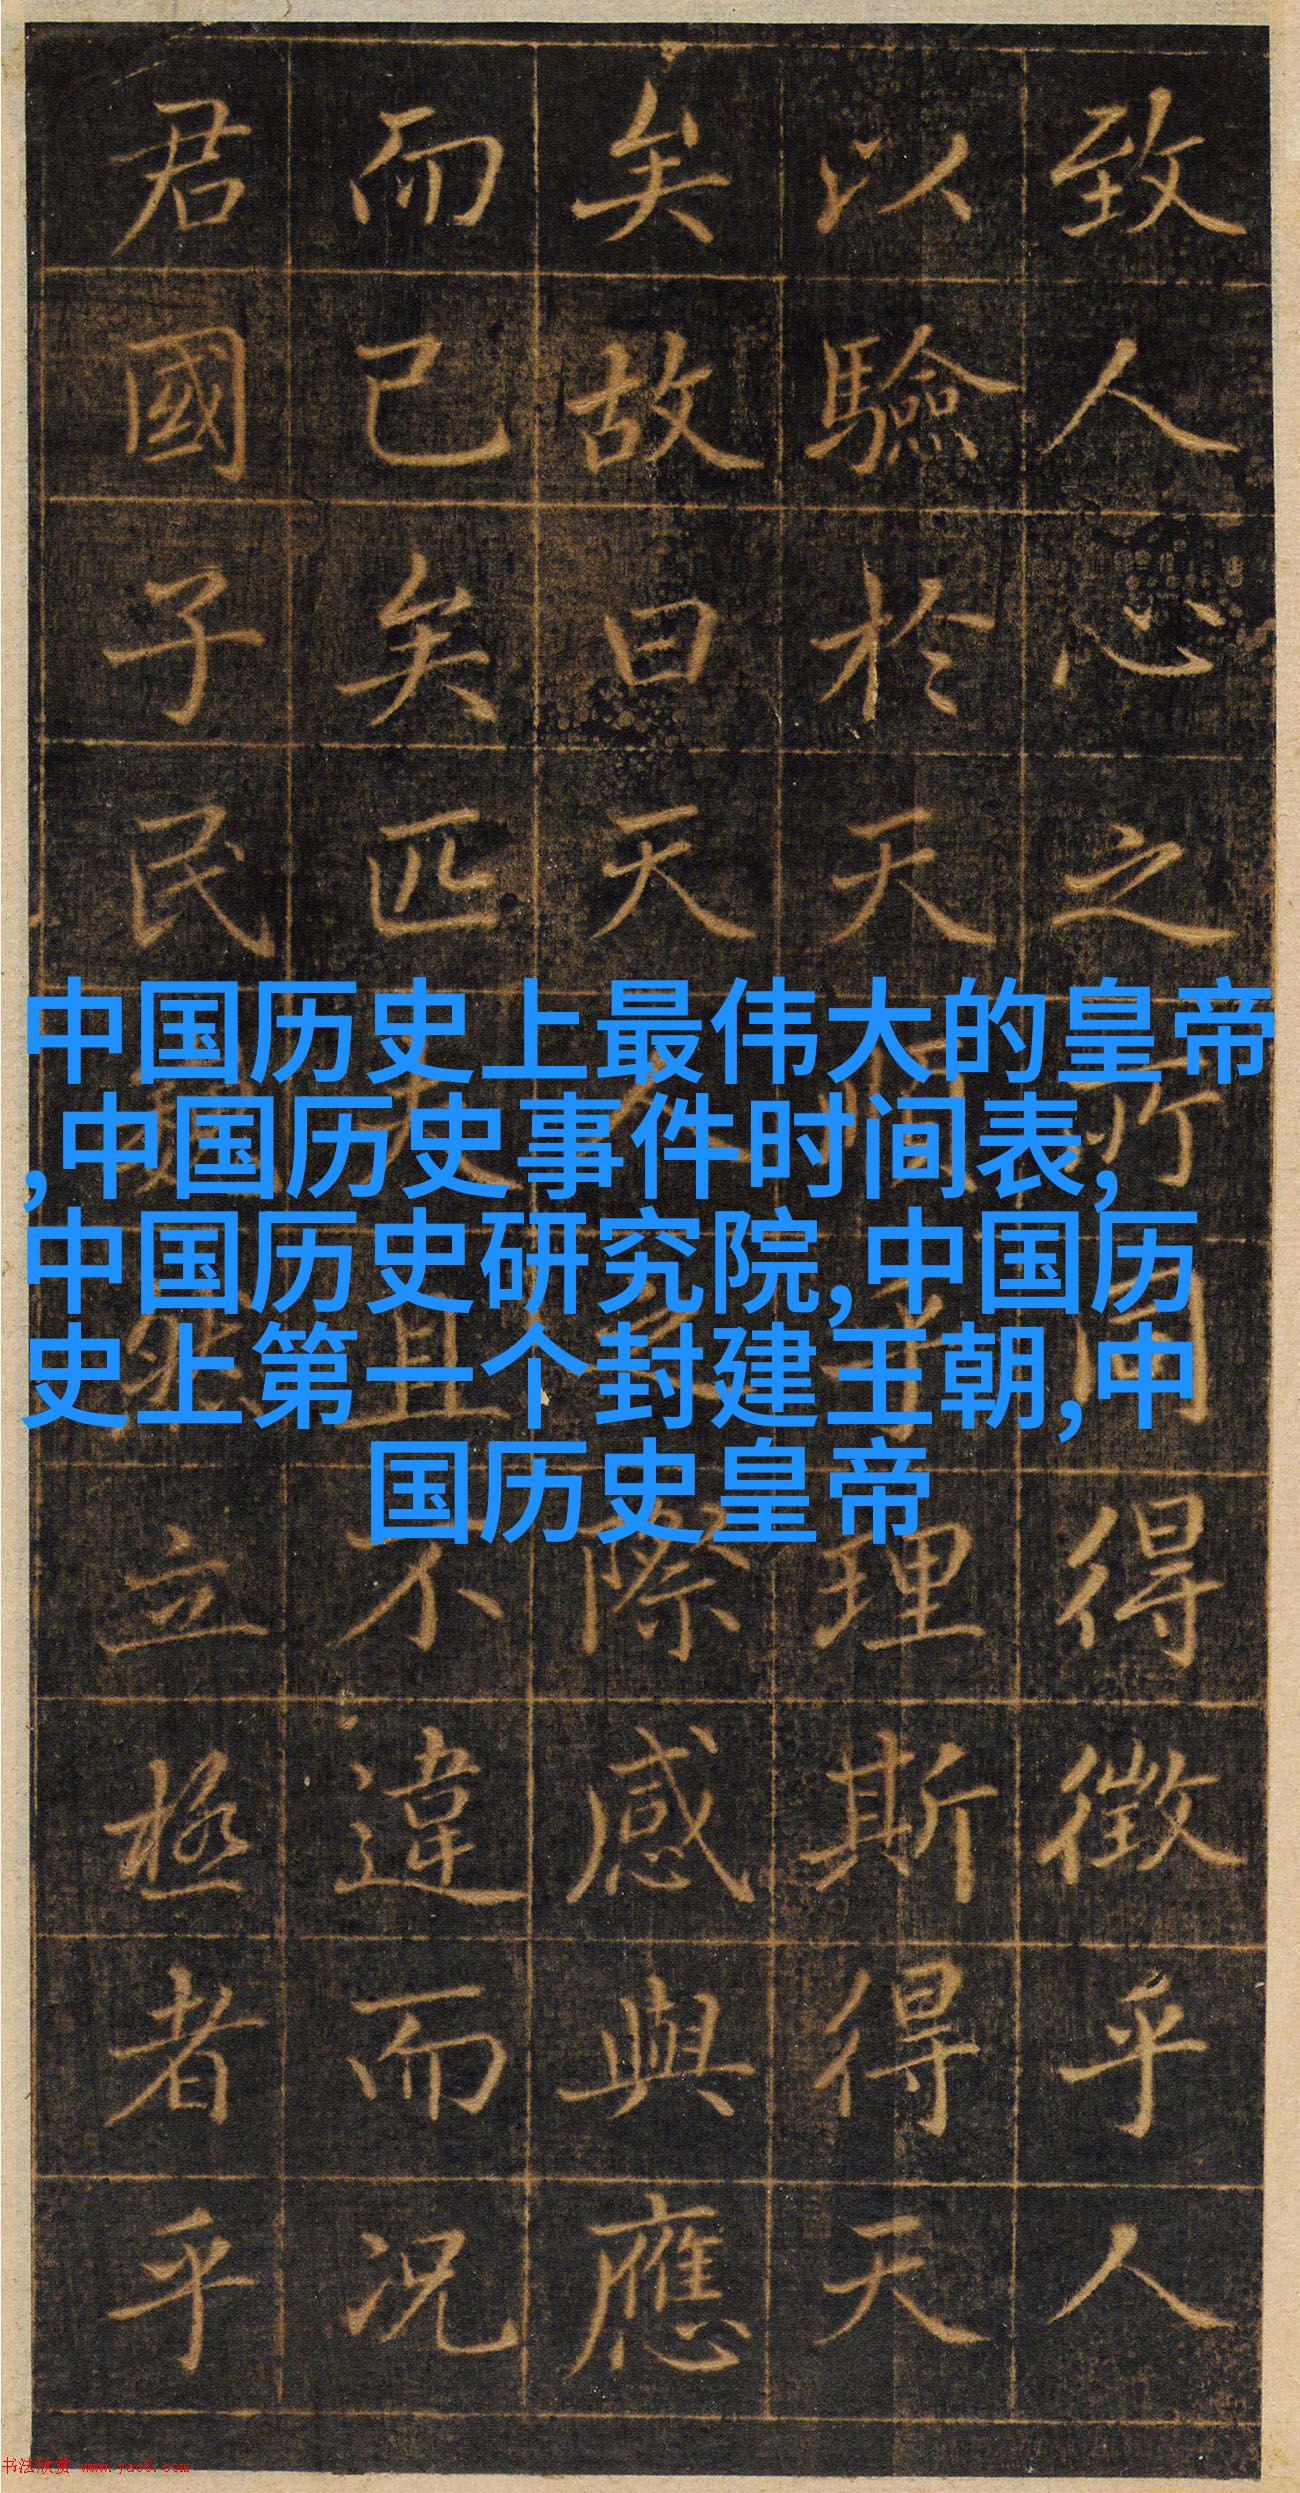 致人心之所同得徵乎人
以驗於天理斯得天
矣故曰天人之際感與應
而已矣匹夫且不違而况
君國子民立極者乎
中国历史上最伟大的皇帝
,中国历史事件时间表,
中国历史研究院,中国历
史上第一个封建王朝,中
国历史皇帝
书法欣赏 www.yac8.com